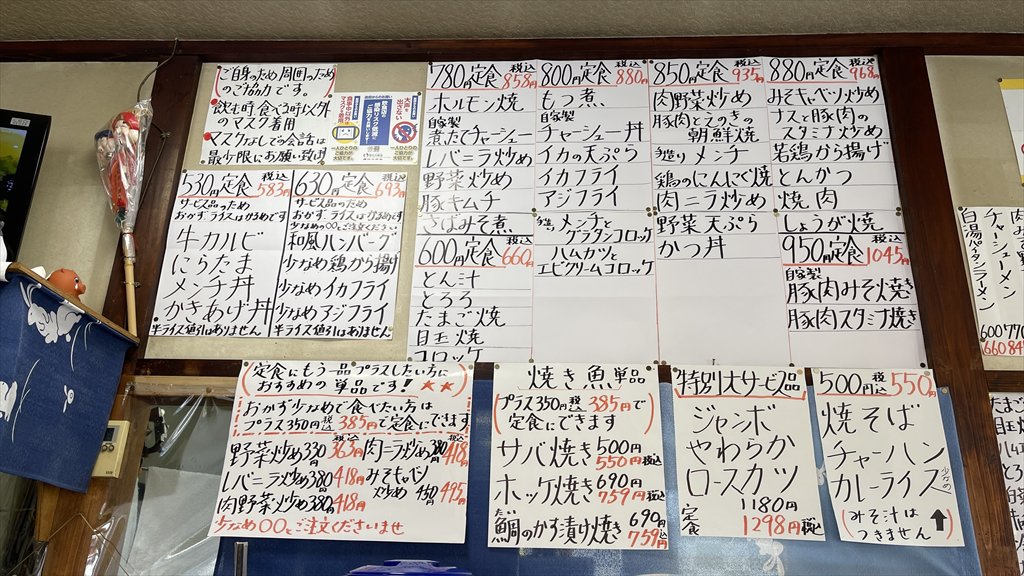 ご自身のため周囲のため
のご協力です。
飲む時食べる時以外
のマスク着用
マスクなしでの会話は
最少限にお願い致します
530定食 税込 583円
サービス品のため
おかず、ライスは少なめです
牛カルビ
にらたま
メンチ丼
かきあげ丼
半ライス値引はありません
630定食 税込 693円
サービス品のため
おかず、ライスは少なめです
少なめの〇〇とご注文ください
和風ハンバーグ
少なめ鶏から揚げ
少なめイカフライ
少なめアジフライ
半ライス値引はありません
780定食 税込 858円
ホルモン焼
自家製
煮たてチャーシュー
レバニラ炒め
野菜炒め
豚キムチ
さばみそ煮
600定食 税込 660円
とん汁
とろろ
たまご焼
目玉焼
コロッケ
800定食 税込 880円
もつ煮、
自家製
チャーシュー丼
イカの天ぷら
イカフライ
アジフライ
手造り メンチと
グラタンコロッケ
ハムカツと
エビクリームコロッケ
850定食 税込 935円
肉野菜炒め
豚肉とえのきの
朝鮮焼
手造り メンチ
鶏のにんにく焼
肉ニラ炒め
野菜天ぷら
かつ丼
880定食 税込 968円
みそキャベツ炒め
ナスと豚肉の
スタミナ炒め
若鶏から揚げ
とんかつ
焼肉
しょうが焼
950定食 税込 1045円
自家製
豚肉みそ焼き
豚肉スタミナ焼き
定食にもう一品プラスしたい方に
おすすめの単品です！★★
おかず少なめで食べたい方は
プラス350円 税込 385円で定食にできます
野菜炒め330 税込 363円
レバニラ炒め380 418円
肉野菜炒め380 418円
肉ニラ炒め380 税込 418円
みそキャベツ
炒め 450 495円
少なめ〇〇とご注文くださいませ
焼き魚単品
プラス350円 税込 385円で
定食にできます
サバ焼き 500円
550円税込
ホッケ焼き 690円
759円税込
鯛のかす漬け焼き 690円
759円
特別大サービス品
ジャンボ
やわらか
ロースカツ
定食 1180円
1298円税込
500円 税込 550円
焼そば
チャーハン
カレーライス 少なめ
みそ汁は
つきません
白湯パイタンラーメン
チャーシューメン
600 770
660 84